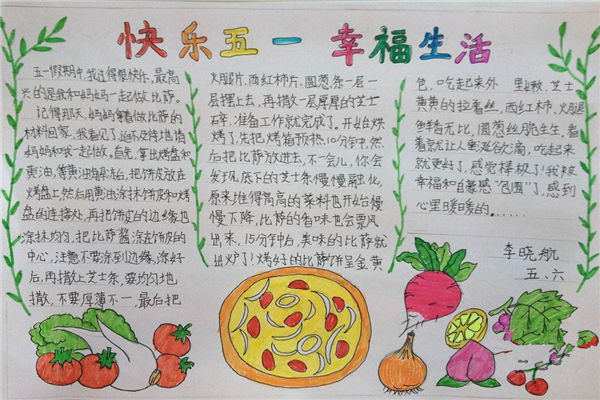 快乐五一 幸福生活
五一假期中,我过得很快乐,最高
兴的是我和妈妈一起做比萨。
记得那天,妈妈拿着做比萨的
材料回家,我看见了,迫不及待地请
妈妈和我一起做。首先,拿出烤盘和
黄油,等黄油溶解后,把饼皮放在
烤盘上,然后用黄油涂抹饼皮和烤
盘的连接处,再把饼皮的边缘也
涂抹均匀,把比萨酱涂在饼皮的
中心,注意不要涂到边缘,涂好
后,再撒上芝士条,要均匀地
撒,不要厚薄不一,最后把
火腿片、西红柿片、圆葱条一层一
层摆上去,再撒一层厚厚的芝士
碎,准备工作就完成了。开始烘
烤了,先把烤箱预热10分钟,然
后把比萨放进去,不一会儿,你会
发现底下的芝士条慢慢融化,
原来堆得高高的菜料也开始慢
慢下降,比萨的香味也会飘风
出来,15分钟后,美味的比萨就
出炉了!烤好的比萨饼呈金黄
色,吃起来外 里嫩,芝士
黄黄的拉着丝,西红柿、火腿
鲜香无比,圆葱丝脆生生,看
着就让人垂涎欲滴,吃起来
就更好了,感觉棒极了!我被
幸福和自豪感“包围”了,感到
心里暖暖的......
李晓航
五、六